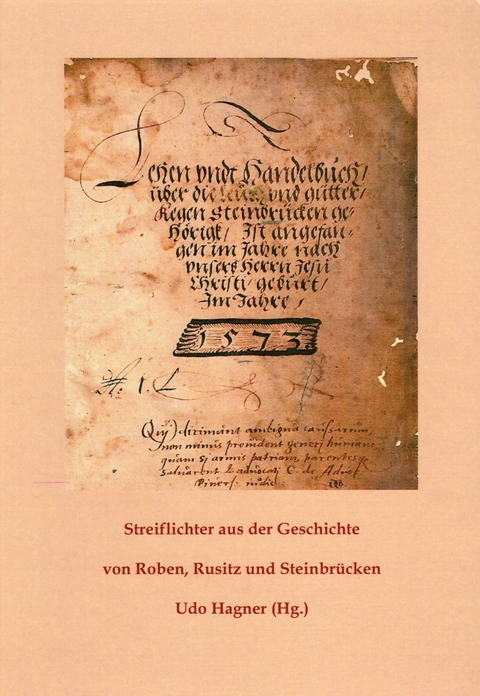 Lehen vndt Handelbuch/
über die leütt vnd gütter/
Kegen Steinbrücken ge-
hörigk/ Ist angefan-
gen im Jahre nach
vnsers Herrn Jesu
Christi geburt/
Im Jahre/
1573.
Qui dirimunt ambigua caussarum,
non minus prouident generi humano
quam si armis patriam, parentesq
saluarent L advocati C. de Advoc
Diuers. iudic.
Streiflichter aus der Geschichte
von Roben, Rusitz und Steinbrücken
Udo Hagner (Hg.)